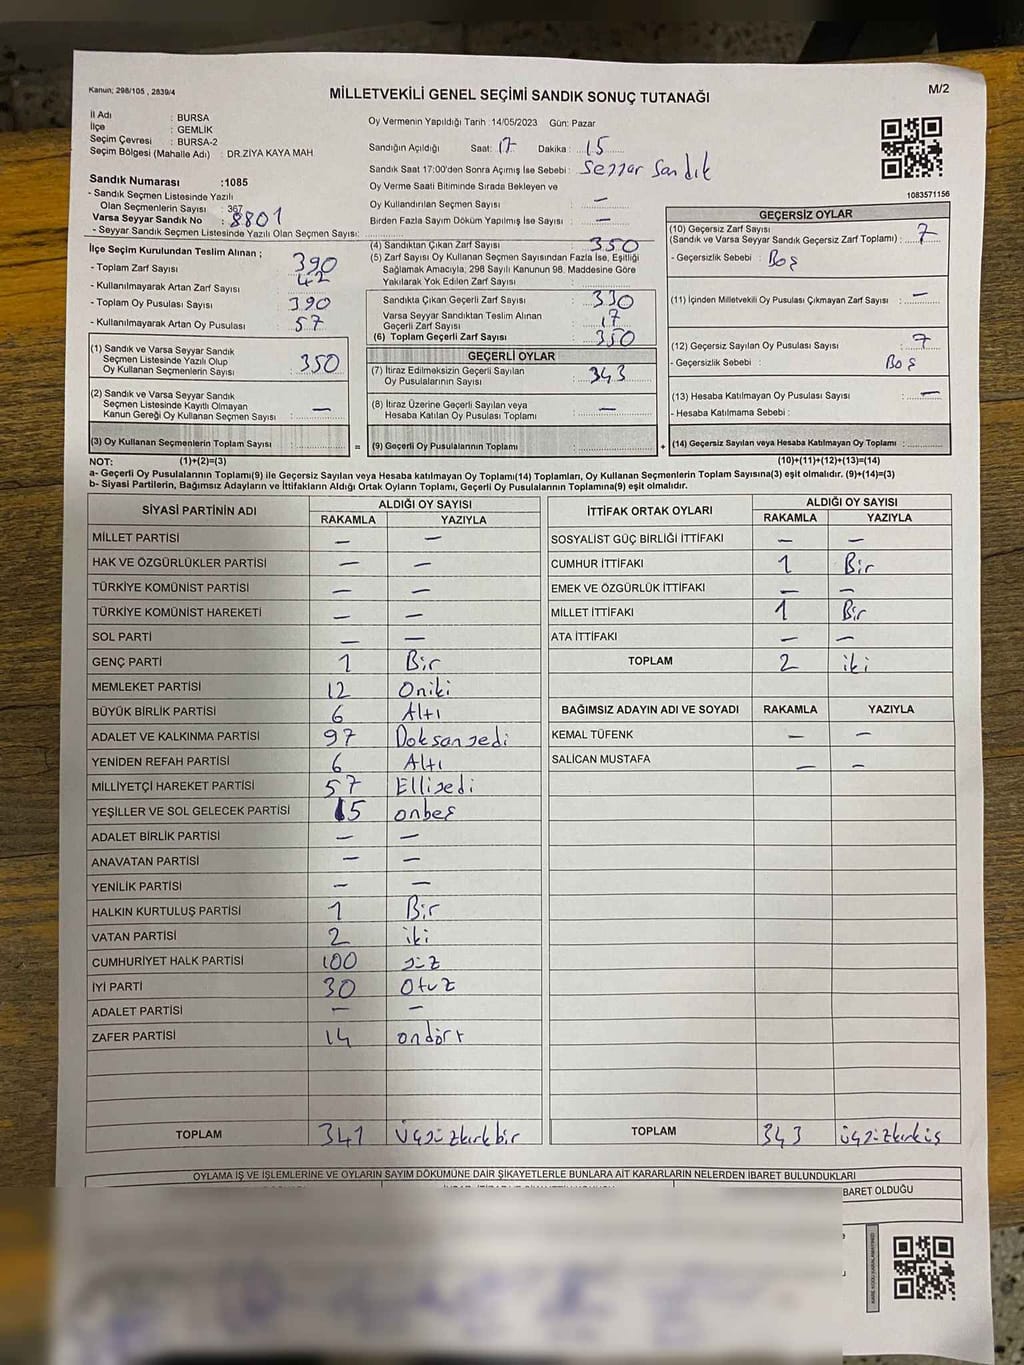 Kanun; 298/105 , 2839/4
MİLLETVEKİLİ GENEL SEÇİMİ SANDIK SONUÇ TUTANAĞI
M/2
İl Adı : BURSA
İlçe : GEMLİK
Seçim Çevresi : BURSA-2
Seçim Bölgesi (Mahalle Adı) : DR.ZİYA KAYA MAH
Oy Vermenin Yapıldığı Tarih :14/05/2023 Gün: Pazar
Sandığın Açıldığı Saat: 17 Dakika : 15
Sandık Saat 17:00'den Sonra Açımış İse Sebebi : Seyyar Sandık
Oy Verme Saati Bitiminde Sırada Bekleyen ve
Oy Kullandırılan Seçmen Sayısı : —
Birden Fazla Sayım Döküm Yapılmış İse Sayısı : —
1083571156
Sandık Numarası :1085
- Sandık Seçmen Listesinde Yazılı
Olan Seçmenlerin Sayısı : 367
Varsa Seyyar Sandık No : 8801
- Seyyar Sandık Listesinde Yazılı Olan Seçmen Sayısı:
İlçe Seçim Kurulundan Teslim Alınan ;
- Toplam Zarf Sayısı : 390
- Kullanılmayarak Artan Zarf Sayısı : 42
- Toplam Oy Pusulası Sayısı : 390
- Kullanılmayarak Artan Oy Pusulası : 57
(1) Sandık ve Varsa Seyyar Sandık
Seçmen Listesinde Yazılı Olup
Oy Kullanan Seçmenlerin Sayısı : 350
(2) Sandık ve Varsa Seyyar Sandık
Seçmen Listesinde Kayıtlı Olmayan
Kanun Gereği Oy Kullanan Seçmen Sayısı : —
(3) Oy Kullanan Seçmenlerin Toplam Sayısı :
(4) Sandıktan Çıkan Zarf Sayısı : 350
(5) Zarf Sayısı Oy Kullanan Seçmen Sayısından Fazla İse, Eşitliği
Sağlamak Amacıyla, 298 Sayılı Kanunun 98. Maddesine Göre
Yakılarak Yok Edilen Zarf Sayısı :
Sandıkta Çıkan Geçerli Zarf Sayısı : 330
Varsa Seyyar Sandıktan Teslim Alınan
Geçerli Zarf Sayısı : 17
(6) Toplam Geçerli Zarf Sayısı : 350
GEÇERLİ OYLAR
(7) İtiraz Edilmeksizin Geçerli Sayılan
Oy Pusulalarının Sayısı : 343
(8) İtiraz Üzerine Geçerli Sayılan veya
Hesaba Katılan Oy Pusulası Toplamı : —
= (9) Geçerli Oy Pusulalarının Toplamı :
GEÇERSİZ OYLAR
(10) Geçersiz Zarf Sayısı
(Sandık ve Varsa Seyyar Sandık Geçersiz Zarf Toplamı) : 7
- Geçersizlik Sebebi : Boş
(11) İçinden Milletvekili Oy Pusulası Çıkmayan Zarf Sayısı : —
(12) Geçersiz Sayılan Oy Pusulası Sayısı : 7
- Geçersizlik Sebebi : Boş
(13) Hesaba Katılmayan Oy Pusulası Sayısı : —
- Hesaba Katılmama Sebebi :
+ (14) Geçersiz Sayılan veya Hesaba Katılmayan Oy Toplamı :
NOT: (1)+(2)=(3) (10)+(11)+(12)+(13)=(14)
a- Geçerli Oy Pusulalarının Toplamı(9) ile Geçersiz Sayılan veya Hesaba katılmayan Oy Toplamı(14) Toplamları, Oy Kullanan Seçmenlerin Toplam Sayısına(3) eşit olmalıdır. (9)+(14)=(3)
b- Siyasi Partilerin, Bağımsız Adayların ve İttifakların Aldığı Ortak Oyların Toplamı, Geçerli Oy Pusulalarının Toplamına(9) eşit olmalıdır.
SİYASİ PARTİNİN ADI ALDIĞI OY SAYISI
RAKAMLA YAZIYLA
MİLLET PARTİSİ — —
HAK VE ÖZGÜRLÜKLER PARTİSİ — —
TÜRKİYE KOMÜNİST PARTİSİ — —
TÜRKİYE KOMÜNİST HAREKETİ — —
SOL PARTİ — —
GENÇ PARTİ 1 Bir
MEMLEKET PARTİSİ 12 Oniki
BÜYÜK BİRLİK PARTİSİ 6 Altı
ADALET VE KALKINMA PARTİSİ 97 Doksanyedi
YENİDEN REFAH PARTİSİ 6 Altı
MİLLİYETÇİ HAREKET PARTİSİ 57 Elliyedi
YEŞİLLER VE SOL GELECEK PARTİSİ 15 onbeş
ADALET BİRLİK PARTİSİ — —
ANAVATAN PARTİSİ — —
YENİLİK PARTİSİ — —
HALKIN KURTULUŞ PARTİSİ 1 Bir
VATAN PARTİSİ 2 iki
CUMHURİYET HALK PARTİSİ 100 yüz
İYİ PARTİ 30 Otuz
ADALET PARTİSİ — —
ZAFER PARTİSİ 14 ondört
TOPLAM 341 Üçyüzkırkbir
İTTİFAK ORTAK OYLARI ALDIĞI OY SAYISI
RAKAMLA YAZIYLA
SOSYALİST GÜÇ BİRLİĞİ İTTİFAKI — —
CUMHUR İTTİFAKI 1 Bir
EMEK VE ÖZGÜRLÜK İTTİFAKI — —
MİLLET İTTİFAKI 1 Bir
ATA İTTİFAKI — —
TOPLAM 2 iki
BAĞIMSIZ ADAYIN ADI VE SOYADI RAKAMLA YAZIYLA
KEMAL TÜFENK — —
SALİCAN MUSTAFA — —
TOPLAM 343 üçyüzkırküç
OYLAMA İŞ VE İŞLEMLERİNE VE OYLARIN SAYIM DÖKÜMÜNE DAİR ŞİKAYETLERLE BUNLARA AİT KARARLARIN NELERDEN İBARET BULUNDUKLARI
BARET OLDUĞU